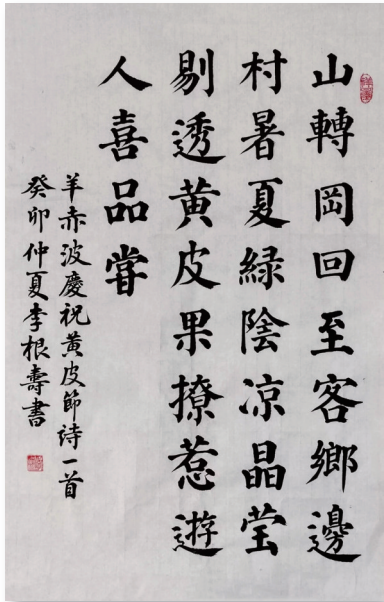 山轉岡回至客鄉邊
村暑夏緑陰凉晶莹
剔透黄皮果撩惹遊
人喜品嘗
羊赤波慶祝黄皮節诗一首
癸卯仲夏李根壽書